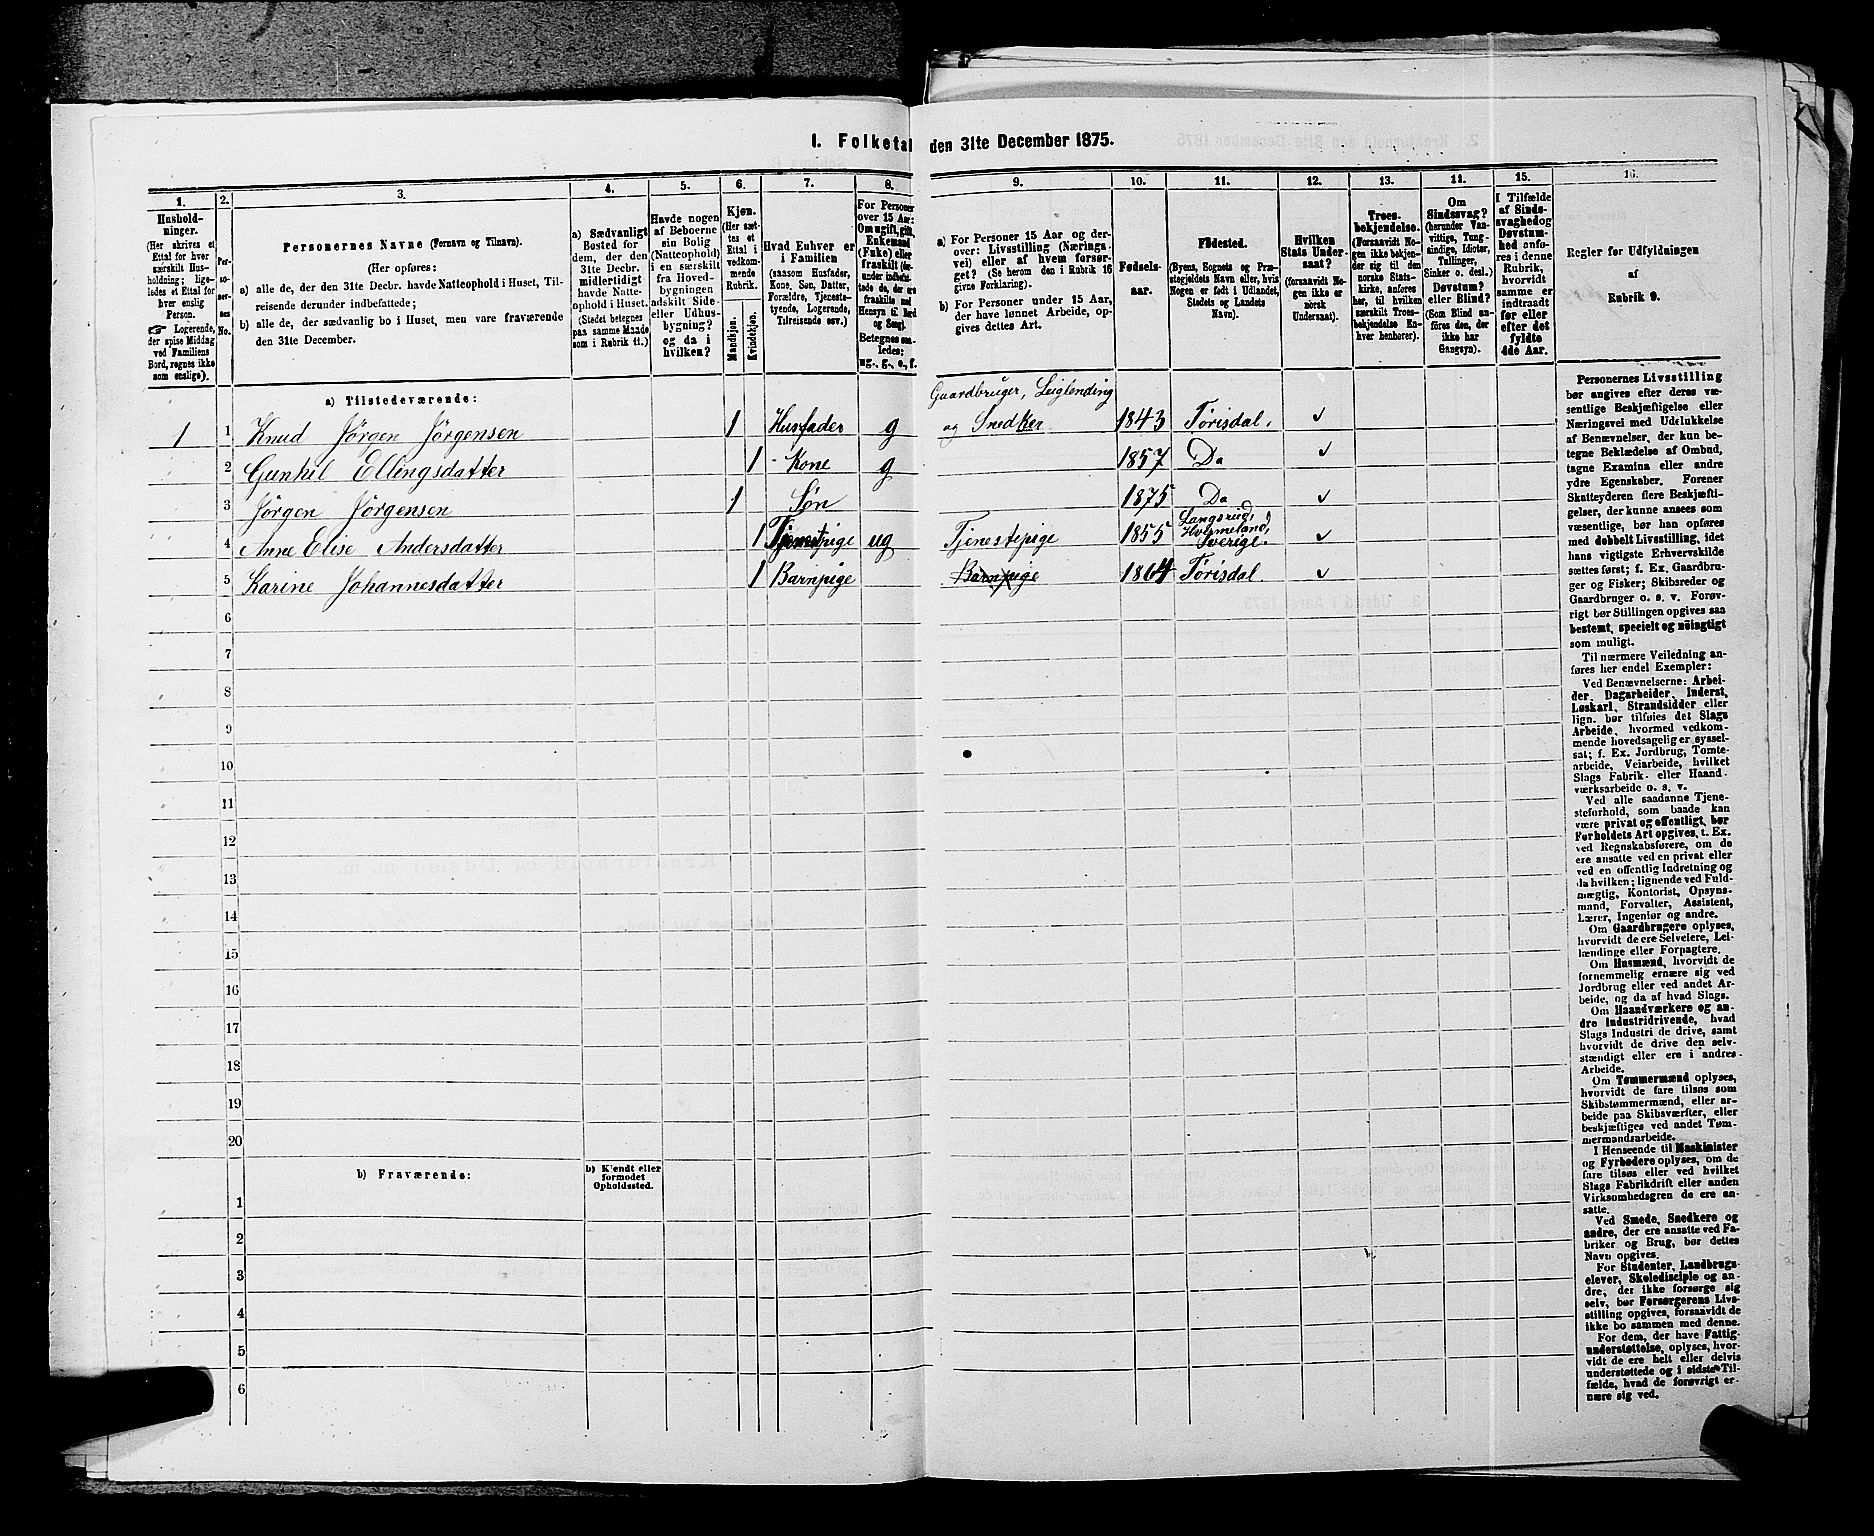 1. Folketal den 31te December 1875.
1. 2. 3. 4. 5. 6. 7. 8. 9. 10. 11. 12. 13. 14. 15. 16.
Hushold-
ninger.
(Her skrives et
Ettal for hver
særskilt Hus-
holdning; lige-
ledes et Ettal for
hver enslig
Person.
☞ Logerende,
der spise Middag
ved Familiens
Bord, regnes ikke
som enslige).
Per-
so-
ner-
nes
No.
Personernes Navne (Fornavn og Tilnavn).
(Her opføres:
a) alle de, der den 31te Decbr. havde Natteophold i Huset, Til-
reisende derunder indbefattede;
b) alle de, der sædvanlig bo i Huset, men vare fraværende
den 31te December.
a) Sædvanligt
Bosted for
dem, der den
31te Decbr.
midlertidigt
havde Natte-
ophold i Huset.
(Stedet betegnes
paa samme Maade
som i Rubrik 11.)
Havde nogen
af Beboerne
sin Bolig
(Natteophold)
i en særskilt
fra Hoved-
bygningen
adskilt Side-
eller Udhus-
bygning?
og da i
hvilken?
Kjøn.
(Her sæt-
tes et
Ettal i
vedkom-
mende
Rubrik.
Mandkjøn.
Kvindekjøn.
Hvad Enhver er
i Familien
(saasom Husfader,
Kone, Søn, Datter,
Forældre, Tjeneste-
tyende, Logerende,
Tilreisende osv.)
For Personer
over 15 Aar:
Om ugift, gift,
Enkemand
(Enke) eller
fraskilt (her-
under indbefat-
tede de, der ere
fraskilte med
Hensyn til Bord
og Seng).
Betegnes saa-
ledes:
ug., g., e., f.
a) For Personer 15 Aar og der-
over: Livsstilling (Nærings-
vei) eller af hvem forsør-
get? (Se herom den i Rubrik 16
givne Forklaring).
b) For Personer under 15 Aar,
der have lønnet Arbeide, op-
gives dettes Art.
Fødsels-
aar.
Fødested.
(Byens, Sognets og Præ-
stegjeldets Navn eller, hvis
Nogen er født i Udlandet,
Stedets og Landets
Navn).
Hvilken
Stats Under-
saat?
(forsaavidt No-
gen ikke er
norsk
Undersaat).
Troes-
bekjendelse.
(Forsaavidt No-
gen ikke bekjen-
der sig til den
norske Stats-
kirke, anføres
her, til hvilken
særskilt Troes-
bekjendelse En-
hver henhører).
Om
Sindssvag?
(herunder Van-
vittige, Tung-
sindige, Idioter,
Tullinger,
Sinker o. desl.)
Døvstum?
eller Blind?
(Som Blind an-
føres den, der
ikke har
Gangsyn).
I Tilfælde
af Sinds-
svaghed og
Døvstum-
hed anfø-
res i denne
Rubrik,
hvorvidt
samme er
indtraadt
før eller
efter det
fyldte
4de Aar.
Regler for Udfyldningen
af
Rubrik 9.
a) Tilstedeværende:
Gaardbruger, Leiglending
1 1 Knud Jørgen Jørgensen 1 Husfader g og Snedker 1843 Tørisdal.
2 Gunhil Ellingsdatter 1 Kone g 1857 Do
3 Jørgen Jørgensen 1 Søn 1875 Do
4 Anne Elise Andersdatter 1 Tjenestpige ug Tjenestepige 1855 Langsrud, Sverige.
5 Karine Johannesdatter 1 Barnpige Barnpige 1864 Tørisdal.
6
7
8
9
10
11
12
13
14
15
16
17
18
19
20
b) Fraværende:
b) Kjendt eller
formodet
Opholdssted.
1
2
3
4
5
6
Personernes Livsstilling
bør angives efter deres væ-
sentlige Beskjæftigelse eller
Næringsvei med Udelukkelse
af Benævnelser, der kun be-
tegne Beklædelse af Ombud,
tagne Examina eller andre
ydre Egenskaber. Forener
Skatteyderen flere Beskjæfti-
gelser, der kunne ansees som
væsentlige, bør han opføres
med dobbelt Livsstilling, idet
hans vigtigste Erhvervskilde
sættes først; f. Ex. Gaardbru-
ger og Fisker; Skibsreder og
Gaardbruger o. s. v. Forøv-
rigt bør Stillingen opgives saa
bestemt, specielt og nøiagtigt
som muligt.
Til nærmere Veiledning an-
føres her endel Exempler:
Ved Benævnelserne: Arbei-
der, Dagarbeider, Inderst,
Løskarl, Strandsidder eller
lign. bør tilføies det Slags
Arbeide, hvormed vedkom-
mende hovedsagelig er syssel-
sat; f. Ex. Jordbrug, Tomte-
arbeide, Veiarbeide, hvilket
Slags Fabrik- eller Haand-
værksarbeide o. s. v.
Ved alle saadanne Tjene-
steforhold, som baade kan
være privat og offentligt, bør
Forholdets Art opgives, t. Ex.
ved Regnskabsførere, om de
ere ansatte ved en privat eller
ved en offentlig Indretning og
da hvilken; lignende ved Fuld-
mægtig, Kontorist, Opsyns-
mand, Forvalter, Assistent,
Lærer, Ingeniør og andre.
Om Gaardbrugere oplyses,
hvorvidt de ere Selveiere, Lei-
lændinge eller Forpagtere.
Om Husmænd, hvorvidt de
fornemmelig ernære sig ved
Jordbrug eller ved andet Ar-
beide, og da af hvad Slags.
Om Haandværkere og an-
dre Industridrivende, hvad
Slags Industri de drive, samt
hvorvidt de drive den selv-
stændigt eller ere i andres
Arbeide.
Om Tømmermænd oplyses,
hvorvidt de fare tilsøs som
Skibstømmermænd, eller ar-
beide paa Skibsværfter, eller
beskjæftiges ved andet Tøm-
mermandsarbeide.
I Henseende til Maskinister
og Fyrbødere oplyses, om de
fare tilsøs eller ved hvilket
Slags Fabrikdrift eller anden
Virksomhedsgren de ere an-
satte.
Ved Smede, Snedkere og
andre, der ere ansatte ved Fa-
briker og Brug, bør dettes
Navn opgives.
For Studenter, Landbrugs-
elever, Skoledisciple og an-
dre, der ikke forsørge sig
selv, bør Forsørgerens Livs-
stilling opgives, forsaavidt de
ikke bo sammen med denne.
For dem, der have Fattig-
understøttelse, oplyses, hvor-
vidt de ere helt eller delvis
understøttede og i sidste Til-
fælde, hvad de forøvrigt er-
nære sig ved.